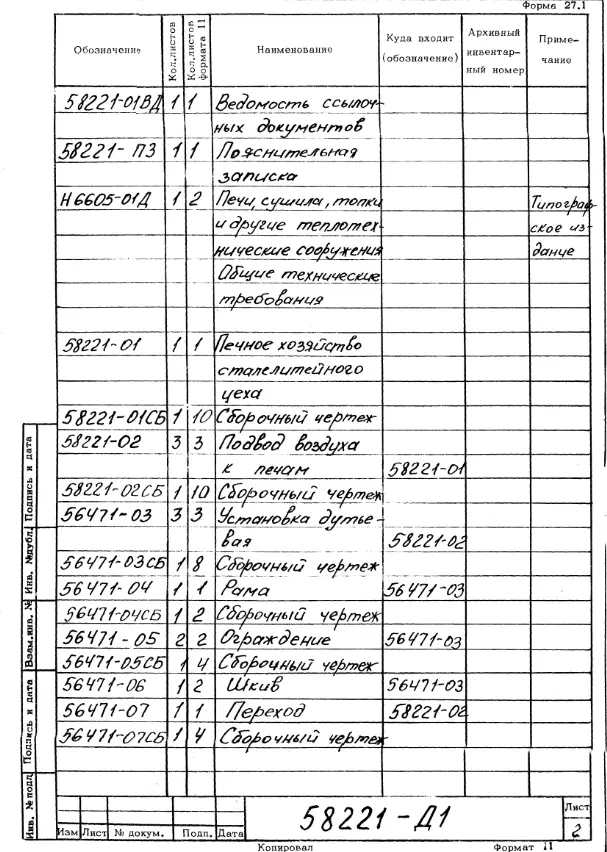 Форма 27.1
Обозначение Кол.листов Кол.листов формата 11 Наименование Куда входит (обозначение) Архивный инвентар- ный номер Приме- чание
58221-01ВД 1 1 Ведомость ссылоч-
ных документов
58221-ПЗ 1 1 Пояснительная
записка
Н6605-01Д 1 2 Печи, сушила, топки Типограф-
и другие теплотех- ское из-
нические сооружения дание
Общие технические
требования
58221-01 1 1 Печное хозяйство
сталелитейного
цеха
58221-01СБ 1 10 Сборочный чертеж
58221-02 3 3 Подвод воздуха
к печам 58221-01
58221-02СБ 1 10 Сборочный чертеж
56471-03 3 3 Установка дутье-
вая 58221-02
56471-03СБ 1 8 Сборочный чертеж
56471-04 1 1 Рама 56471-03
56471-04СБ 1 2 Сборочный чертеж
56471-05 2 2 Ограждение 56471-03
56471-05СБ 1 4 Сборочный чертеж
56471-06 1 2 Шкив 56471-03
56471-07 1 1 Переход 58221-02
56471-07СБ 1 4 Сборочный чертеж
Подпись и дата
Инв. №дубл.
Взам.инв. №
Подпись и дата
Инв. №подл
Изм Лист № докум. Подп. Дата
58221-Д1
Лист
2
Копировал Формат 11